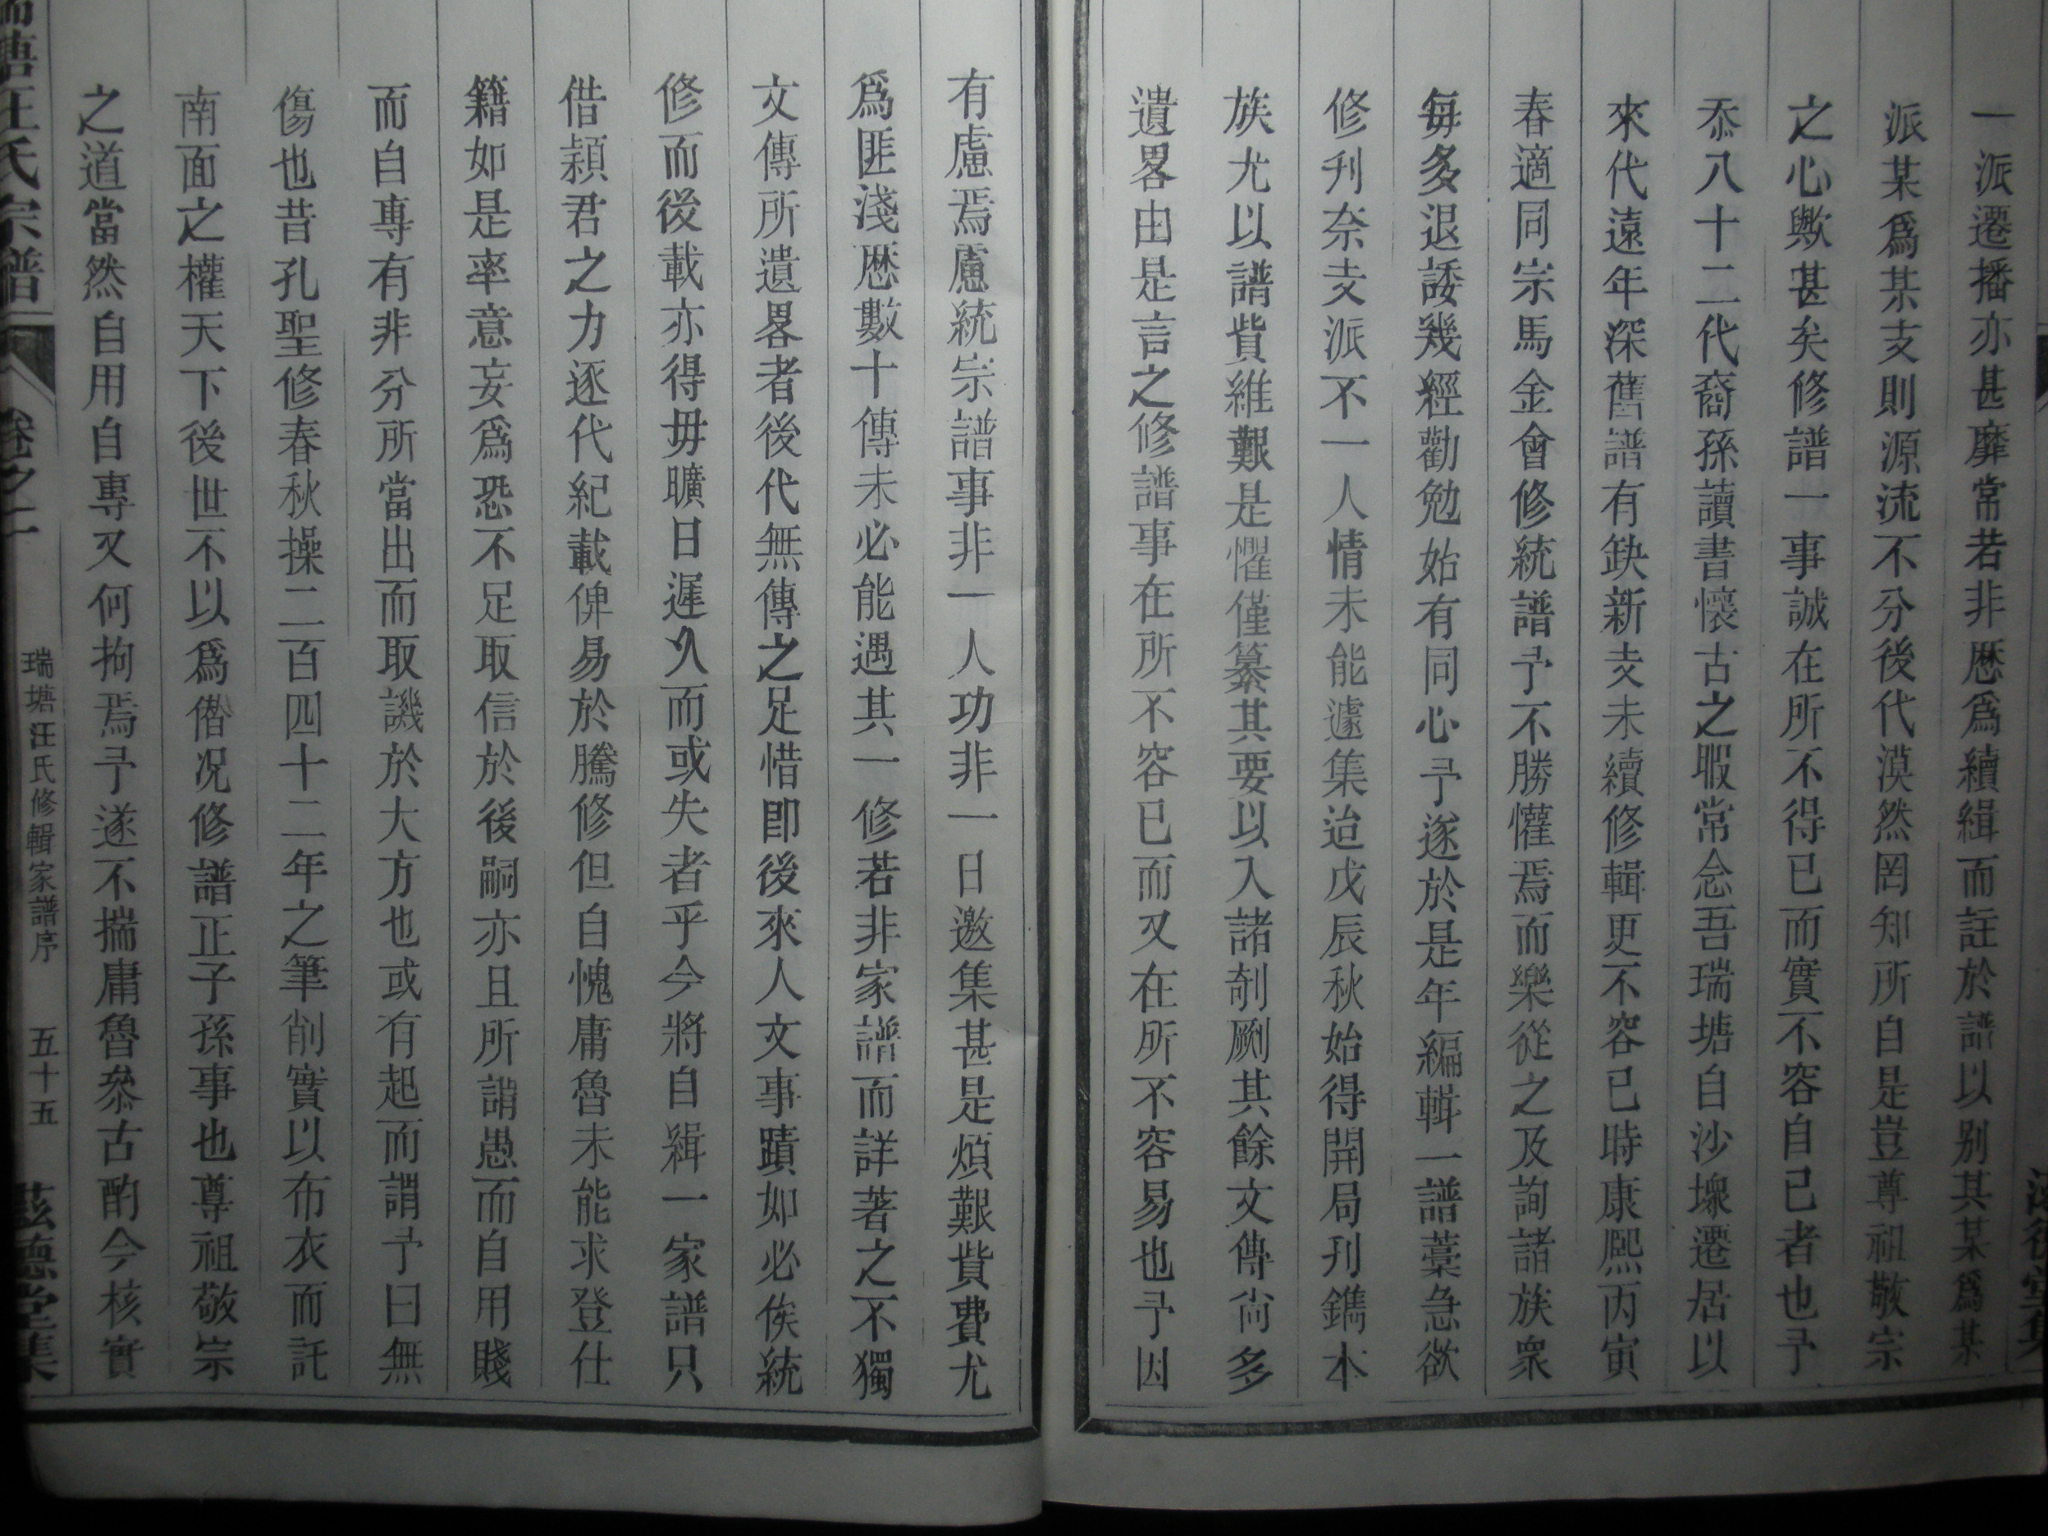 一派遷播亦甚靡常若非歴爲續緝而註於譜以別其某爲某
派某爲某支則源流不分後代漠然罔知所自是豈尊祖敬宗
之心歟甚矣修譜一事誠在所不得已而實不容自已者也予
忝八十二代裔孫讀書懷古之暇常念吾瑞塘自沙堘遷居以
來代遠年深舊譜有缺新支未續修輯更不容已時康熙丙寅
春適同宗馬金會修統譜予不勝懽焉而樂從之及詢諸族衆
每多退諉幾經勸勉始有同心予遂於是年編輯一譜藁急欲
修刋奈支派不一人情未能遽集迨戊辰秋始得開局刋鐫本
族尤以譜貲維艱是懼僅纂其要以入諸剞劂其餘文傳尙多
遺畧由是言之修譜事在所不容已而又在所不容易也予因
有慮焉慮統宗譜事非一人功非一日邀集甚是煩艱貲費尤
爲匪淺歴數十傳未必能遇其一修若非家譜而詳著之不獨
文傳所遺畧者後代無傳之足惜卽後來人文事蹟如必俟統
修而後載亦得毋曠日遲久而或失者乎今將自緝一家譜只
借潁君之力逐代紀載俾易於騰修但自愧庸魯未能求登仕
籍如是率意妄爲恐不足取信於後嗣亦且所謂愚而自用賤
而自專有非分所當出而取譏於大方也或有起而謂予曰無
傷也昔孔聖修春秋操二百四十二年之筆削實以布衣而託
南面之權天下後世不以爲僭况修譜正子孫事也尊祖敬宗
之道當然自用自專又何拘焉予遂不揣庸魯叅古酌今核實
瑞塘汪氏宗譜 卷之一 瑞塘汪氏修輯家譜序 五十五 德堂集